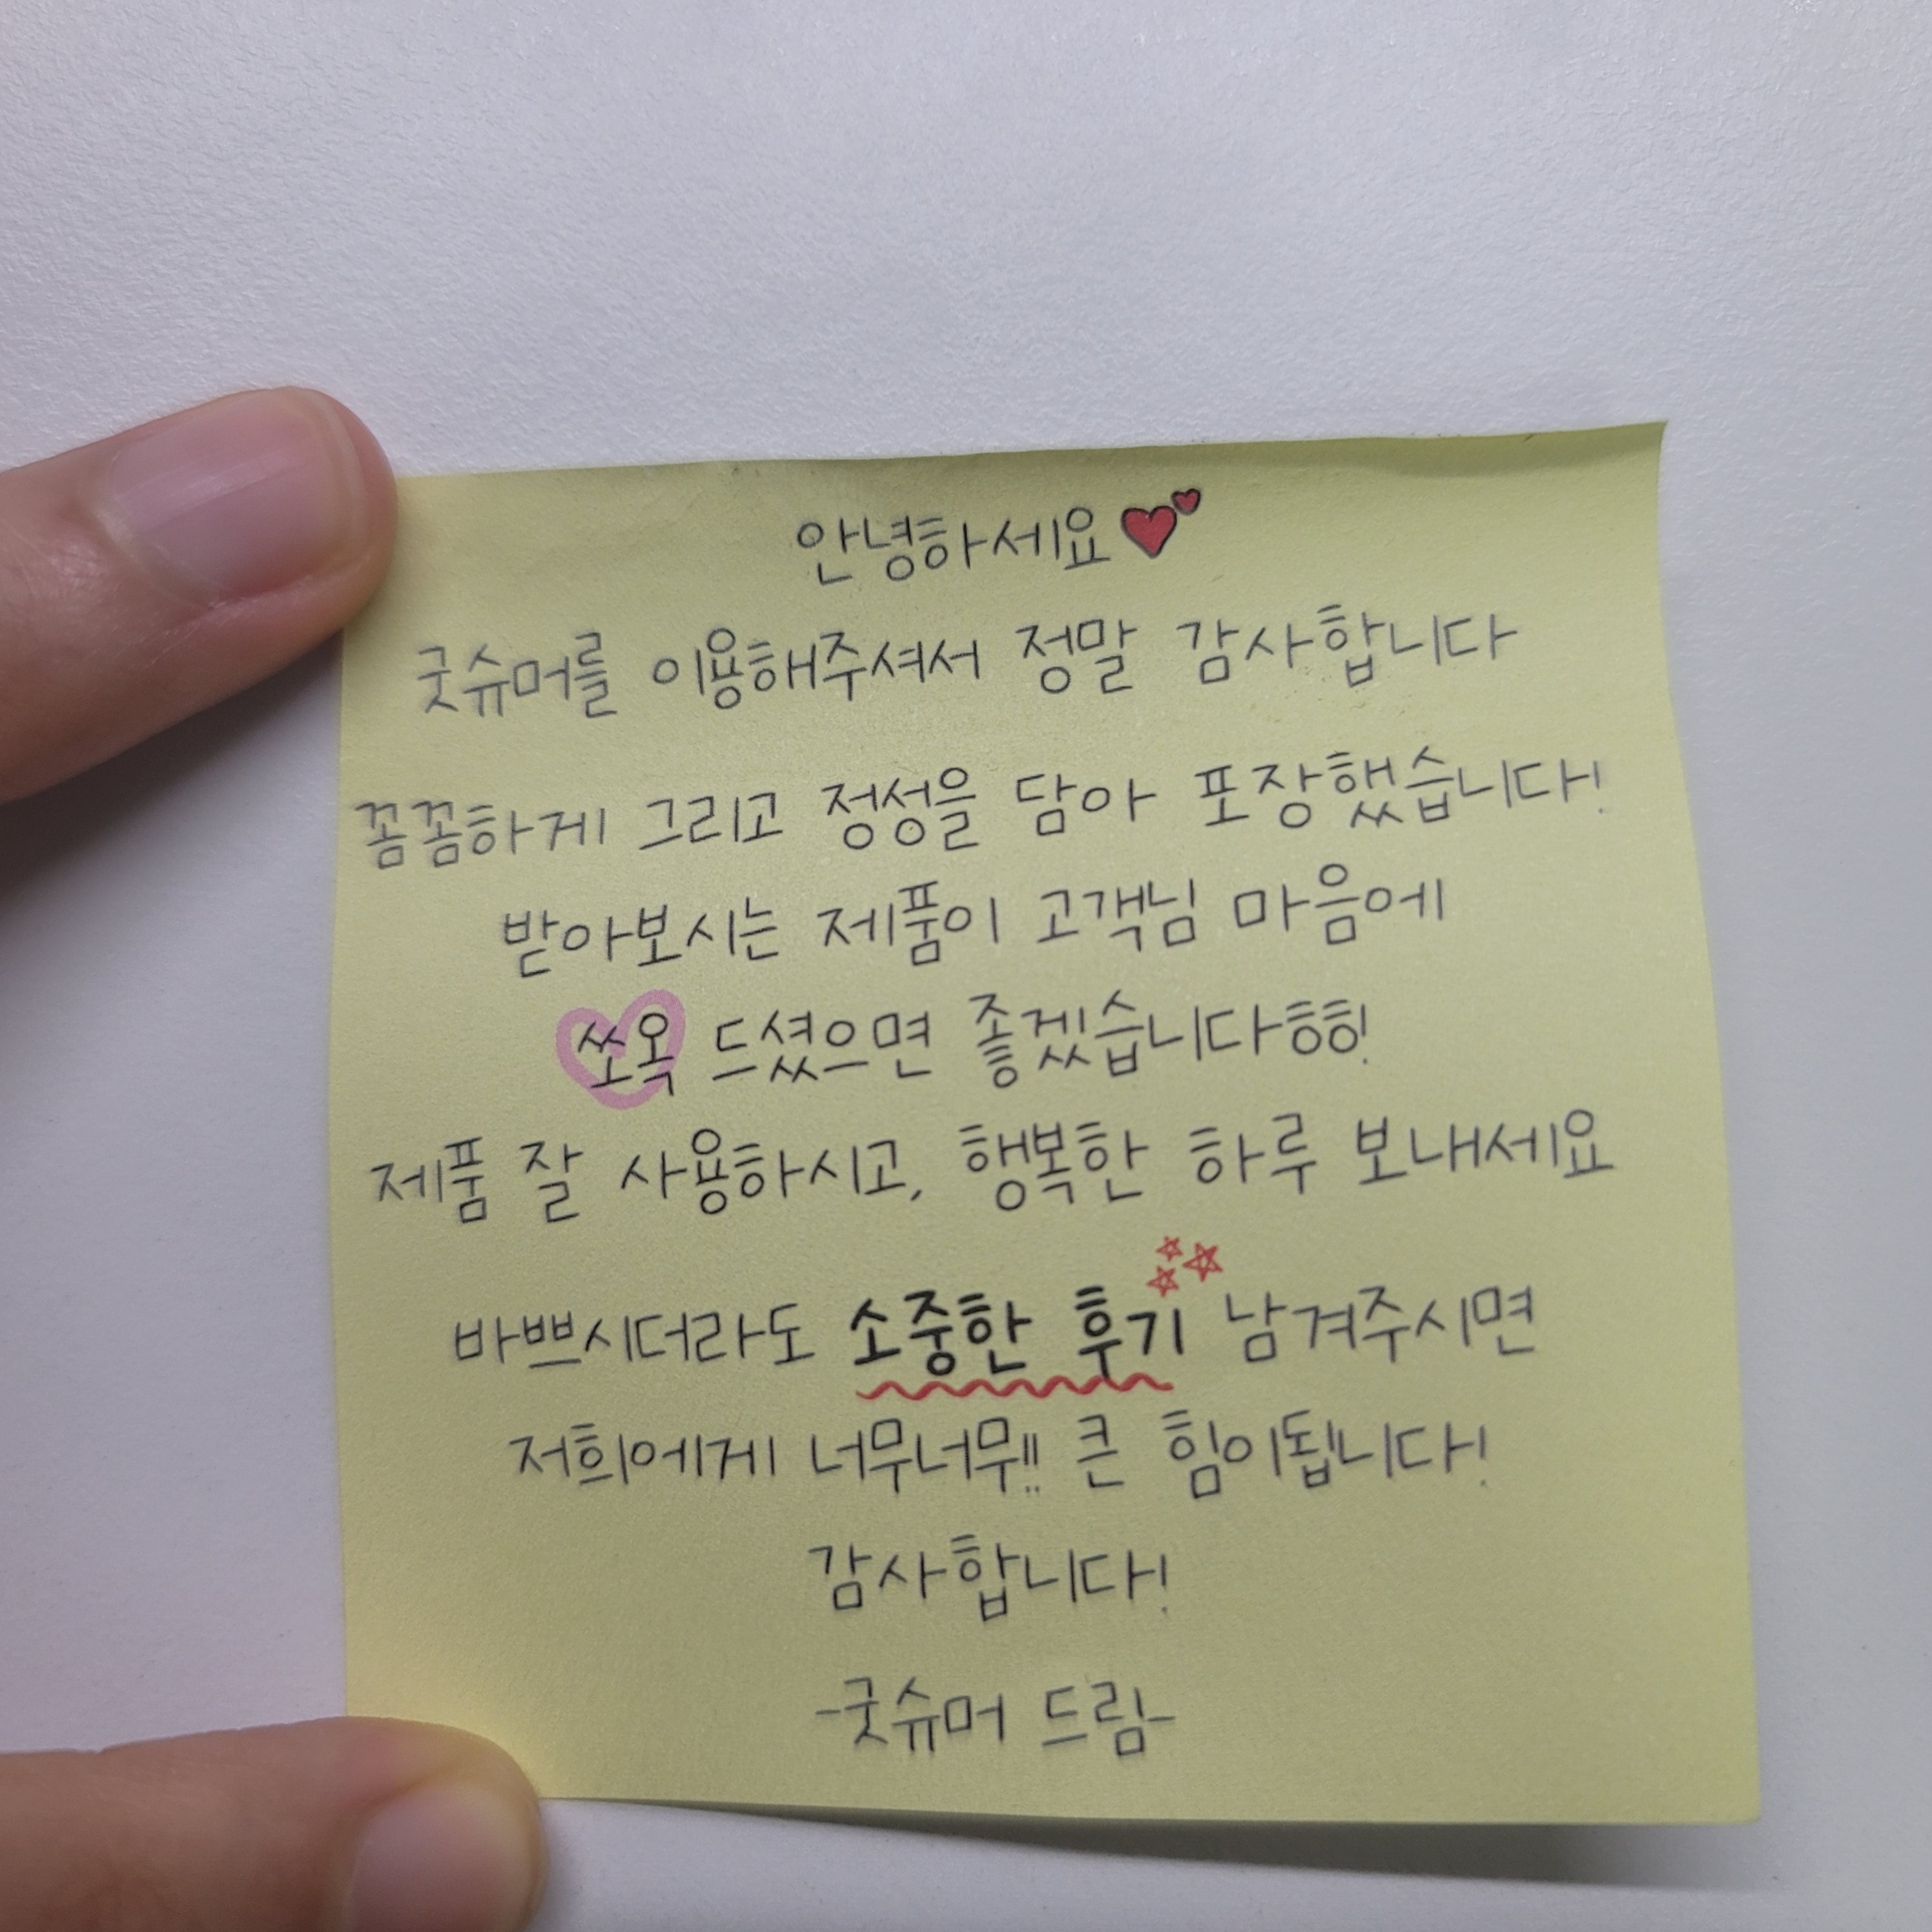 안녕하세요
굿슈머를 이용해주셔서 정말 감사합니다
꼼꼼하게 그리고 정성을 담아 포장했습니다!
받아보시는 제품이 고객님 마음에
쏘옥 드셨으면 좋겠습니다흠흠!
제품 잘 사용하시고, 행복한 하루 보내세요
바쁘시더라도 소중한 후기 남겨주시면
저희에게 너무너무!! 큰 힘이됩니다!
감사합니다!
-굿슈머 드림-